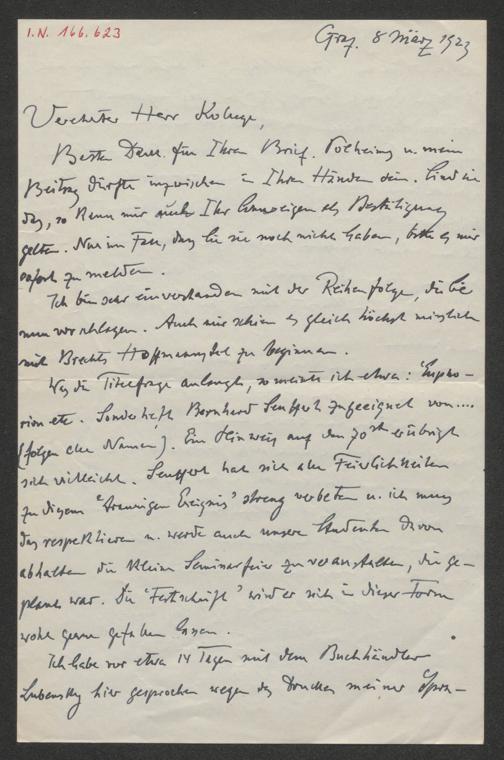 I.N. 166.623
Graz. 8 März 1923
Verehrter Herr Kollege,
Besten Dank für Ihren Brief. Polheims u. mein
Beitrag dürfte inzwischen in Ihren Händen sein. Sind sie
da, so kann mir auch Ihr Schweigen als Bestätigung
gelten. Nur im Falle, daß Sie sie noch nicht haben, bitte es mir
sofort zu melden.
Ich bin sehr einverstanden mit der Reihenfolge, die Sie
nun vorschlagen. Auch mir schien es gleich höchst mißlich
mit Brechts Hoffmannsthal zu beginnen.
Was die Titelfrage anlangt, so meinte ich etwa: "Eupho-
rion etc. Sonderheft Bernhard Seuffert zugeeignet von....
(folgen die Namen). Ein Hinweis auf den 70st erübrigt
sich vielleicht. Seuffert hat sich alle Feierlichkeiten
zu diesem "traurigen Ereignis" streng verbeten u. ich muß
das respektieren u. werde auch unsere Studenten davon
abhalten die kleine Seminarfeier zu veranstalten, die ge-
plant war. Die "Festschrift" wird er sich in dieser Form
wohl gerne gefallen lassen.
Ich habe vor etwa 14 Tagen mit dem Buchhändler
Lubensky hier gesprochen wegen des Druckes meiner